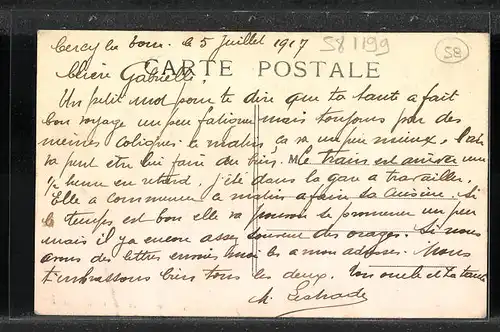 Cercy la Tour. le 5 Juillet 1917
58 1199
58
CARTE POSTALE
Chère Gabrielle,
Un petit mot pour te dire que ta tante a fait
bon voyage un peu fatiguée mais toujours par des
meines coliques. ce matin ça va un peu mieux. l'air
va peut etre lui faire du bien. Mle train est arrivé une
1/2 heure en retard. j'été dans la gare a travailler.
Elle a commencer ce matin a faire sa cuisine. Si
le temps est bon elle va pouvoir se promener un peu
mais il y a encore assez souvent des orages. Si vous
avons des lettres envoies moi les a mon adresse. Nous
t'embrassons bien tous les deux. Ton oncle et ta tante
M. Lestrade